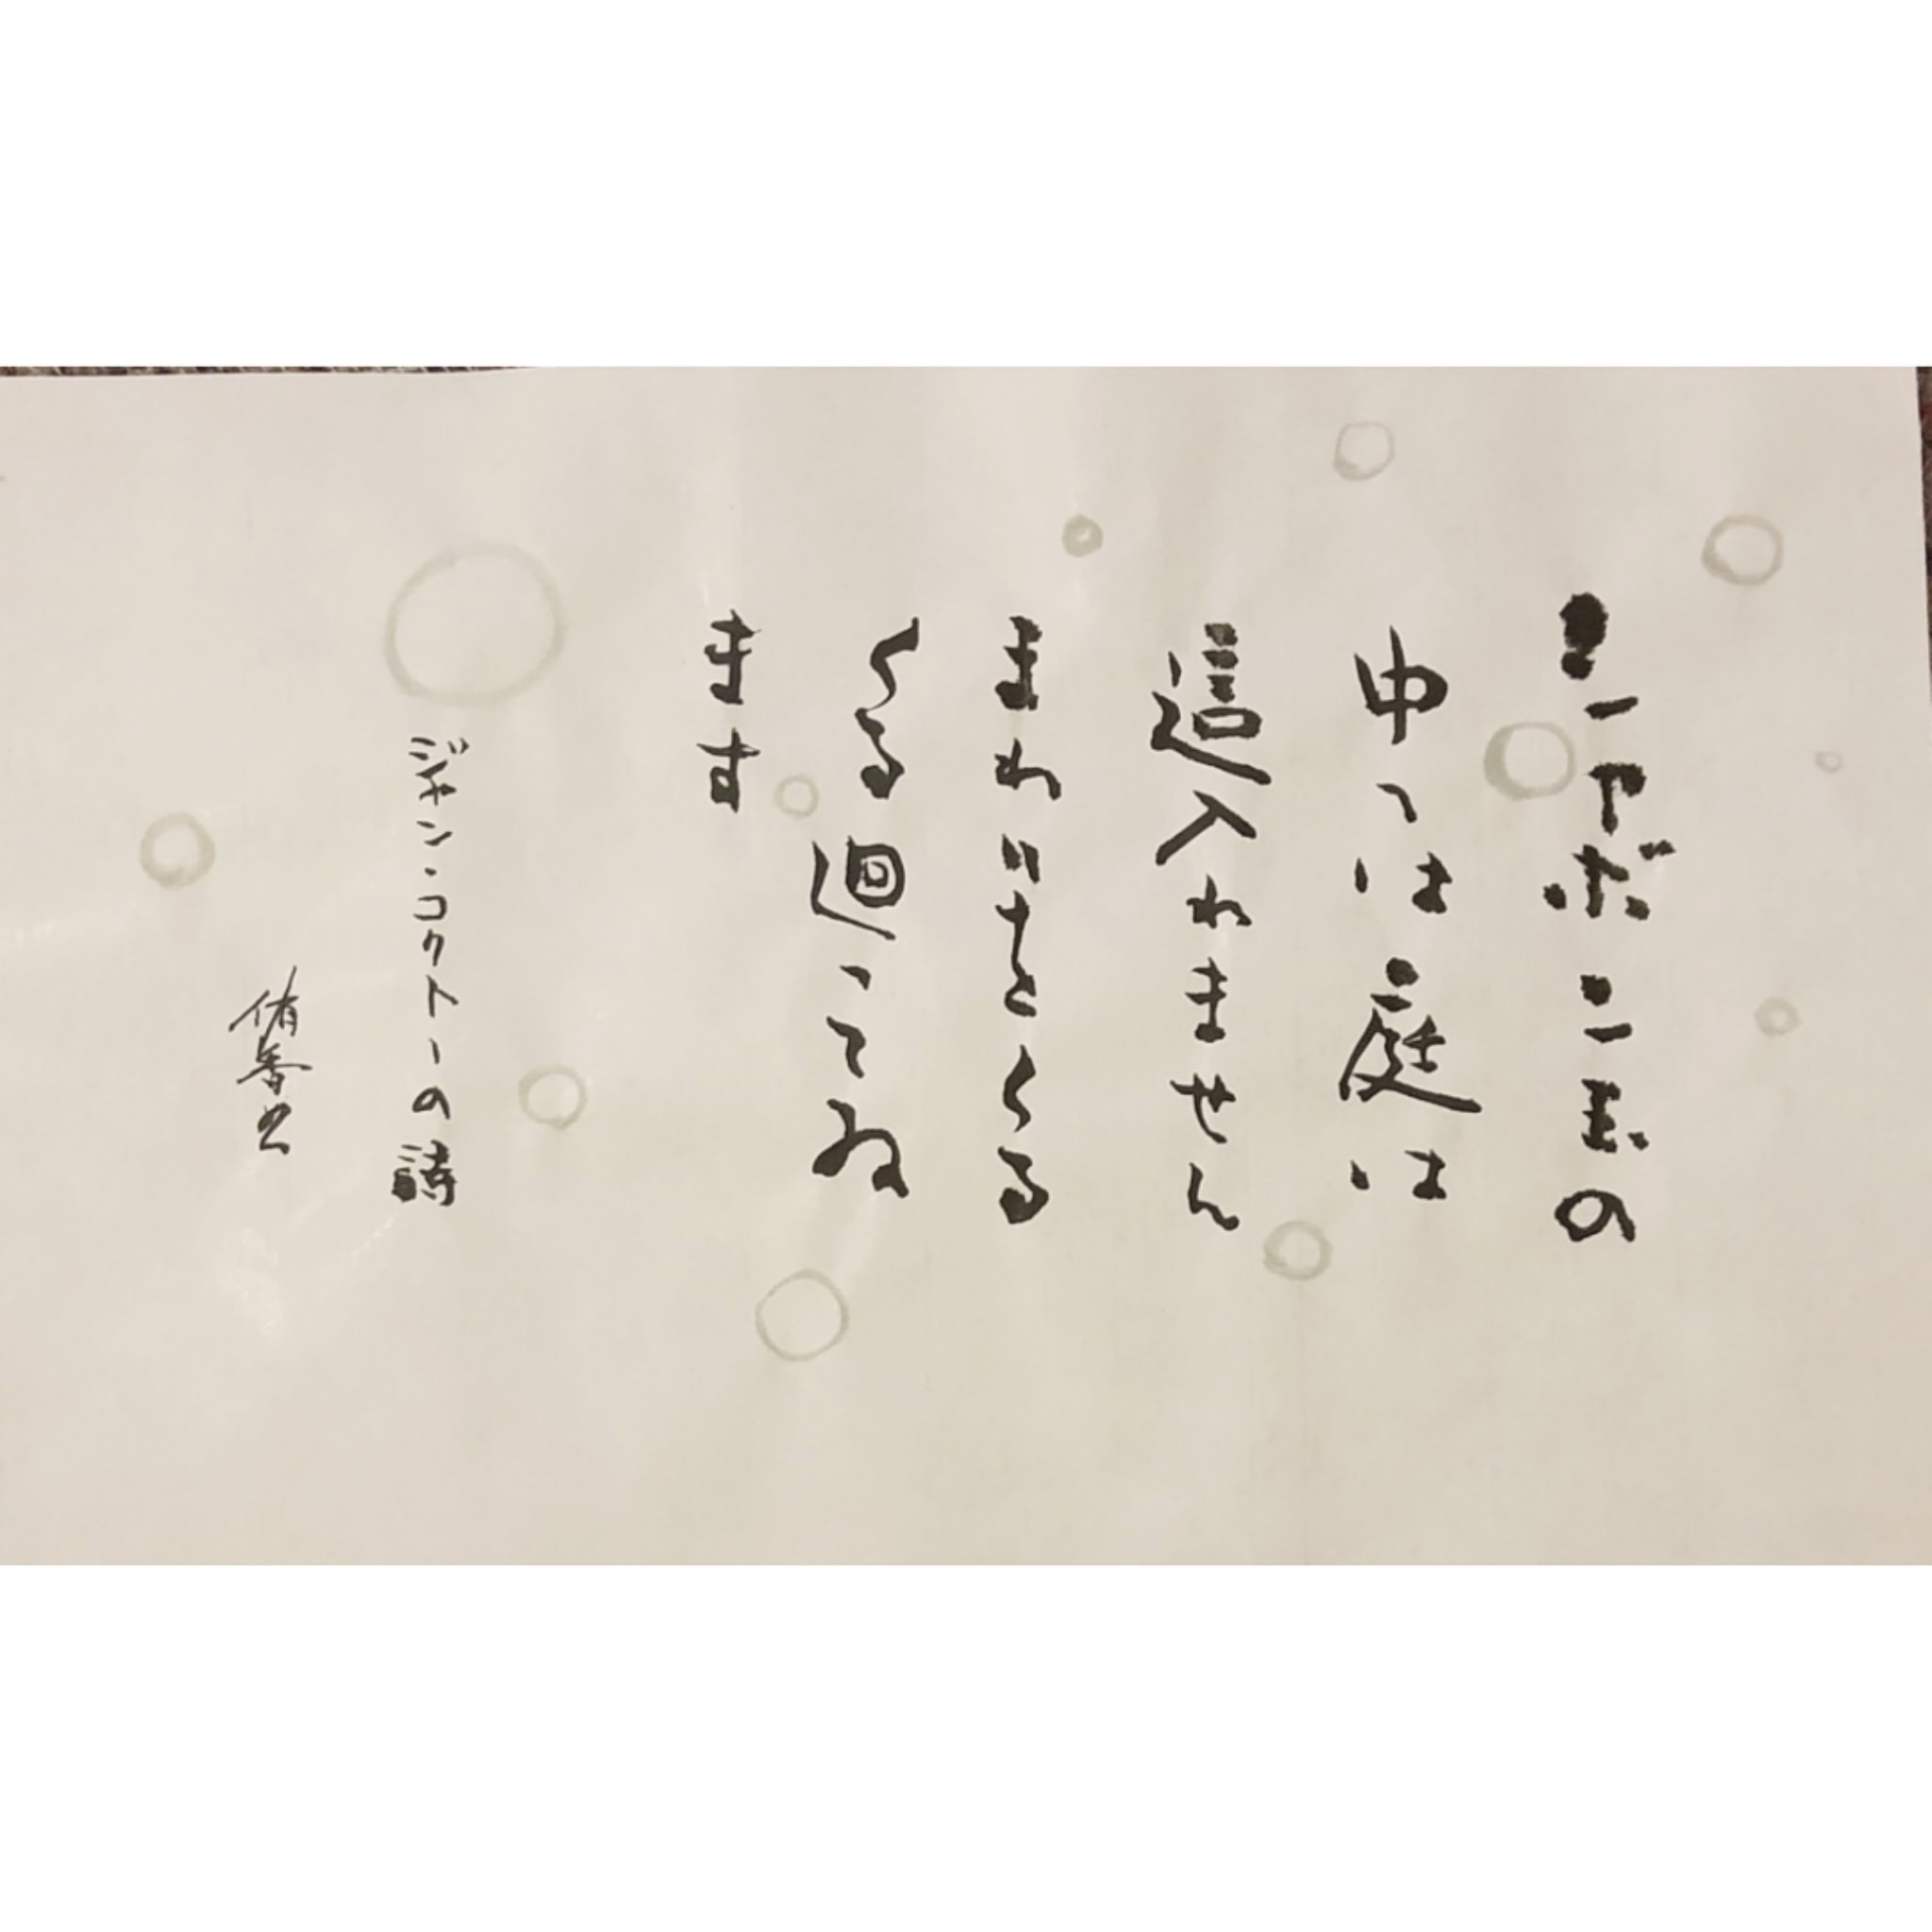 シャボン玉の
中へは庭は
這入れません
まわりをくる
くる廻ってゐ
ます
ジャン・コクトーの詩